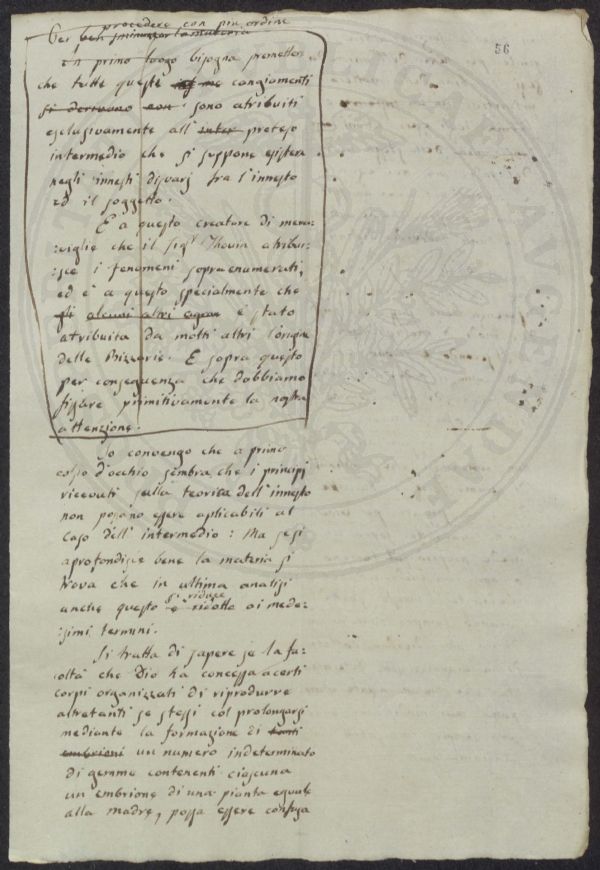 procedere con piu ordine
Per ben sminuzzar la materia
56
in primo luogo bisogna premettere
che tutte queste cangiamenti
si derivano non sono atribuiti
esclusivamente all' inter preteso
intermedio che si suppone esistere
negli innesti disvarj fra l'innesto
ed il soggetto.
E a questo creatore di mera-
:viglie che il sigr Thouin atribui-
:sce i fenomeni sopraenumerati,
ed è a questo specialmente che
si alcuni altri agron è stato
atribuita da molti altri l'origine
delle Bizzarie. E sopra questo
per conseguenza che dobbiamo
fissare primitivamente la nostra
attenzione.
Io convengo che a primo
colpo d'occhio sembra che i principj
ricevuti sulla teorica dell'innesto
non possano essere aplicabili al
caso dell' intermedio: Ma se si
aprofondisce bene la materia si
trova che in ultima analisi
si riduce
anche questo è ridotto ai mede-
:simi termini.
Si tratta di sapere se la fa-
coltà che Dio ha concessa a certi
corpi organizzati di riprodurre
altretanti se stessi col prolongarsi
mediante la formazione di tanti
embrioni un numero indeterminato
di gemme contenenti ciascuna
un embrione di una pianta eguale
alla madre, possa essere confusa